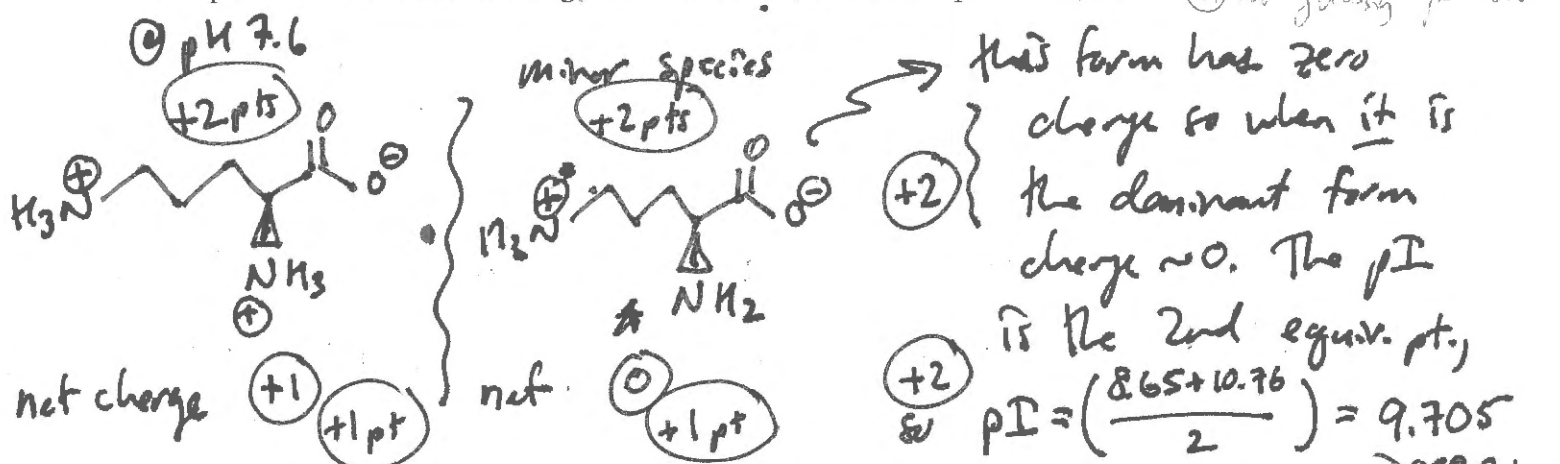 @ pH 7.6
+2 pts
H3N
+
O
O
-
NH3
+
net charge
+1
+1 pt
minor species
+2 pts
H3N
+
O
O
-
NH2
net
0
+1 pt
this form has zero
charge so when it is
+2
the dominant form
charge ~0. The pI
is the 2nd equiv. pt.,
+2
so pI = (8.65+10.76 / 2) = 9.705